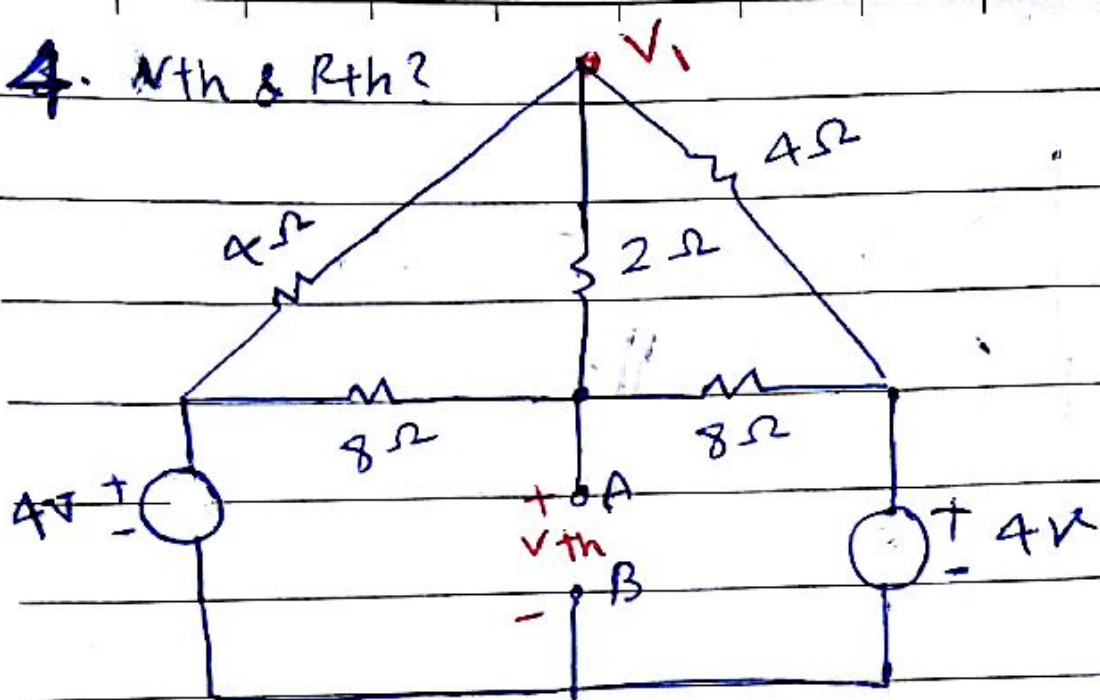 4. Vth & Rth?
V1
4Ω
4Ω
2Ω
8Ω
8Ω
4V + -
+ A
Vth
- B
+ - 4V